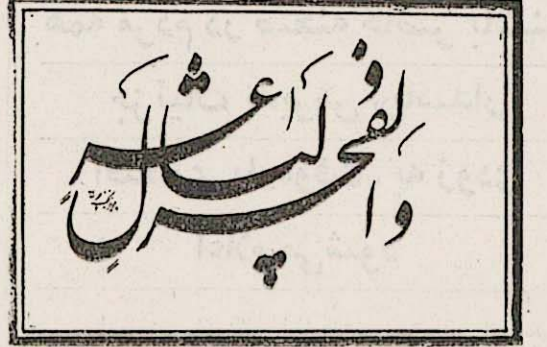 والفجر ولیال عشر